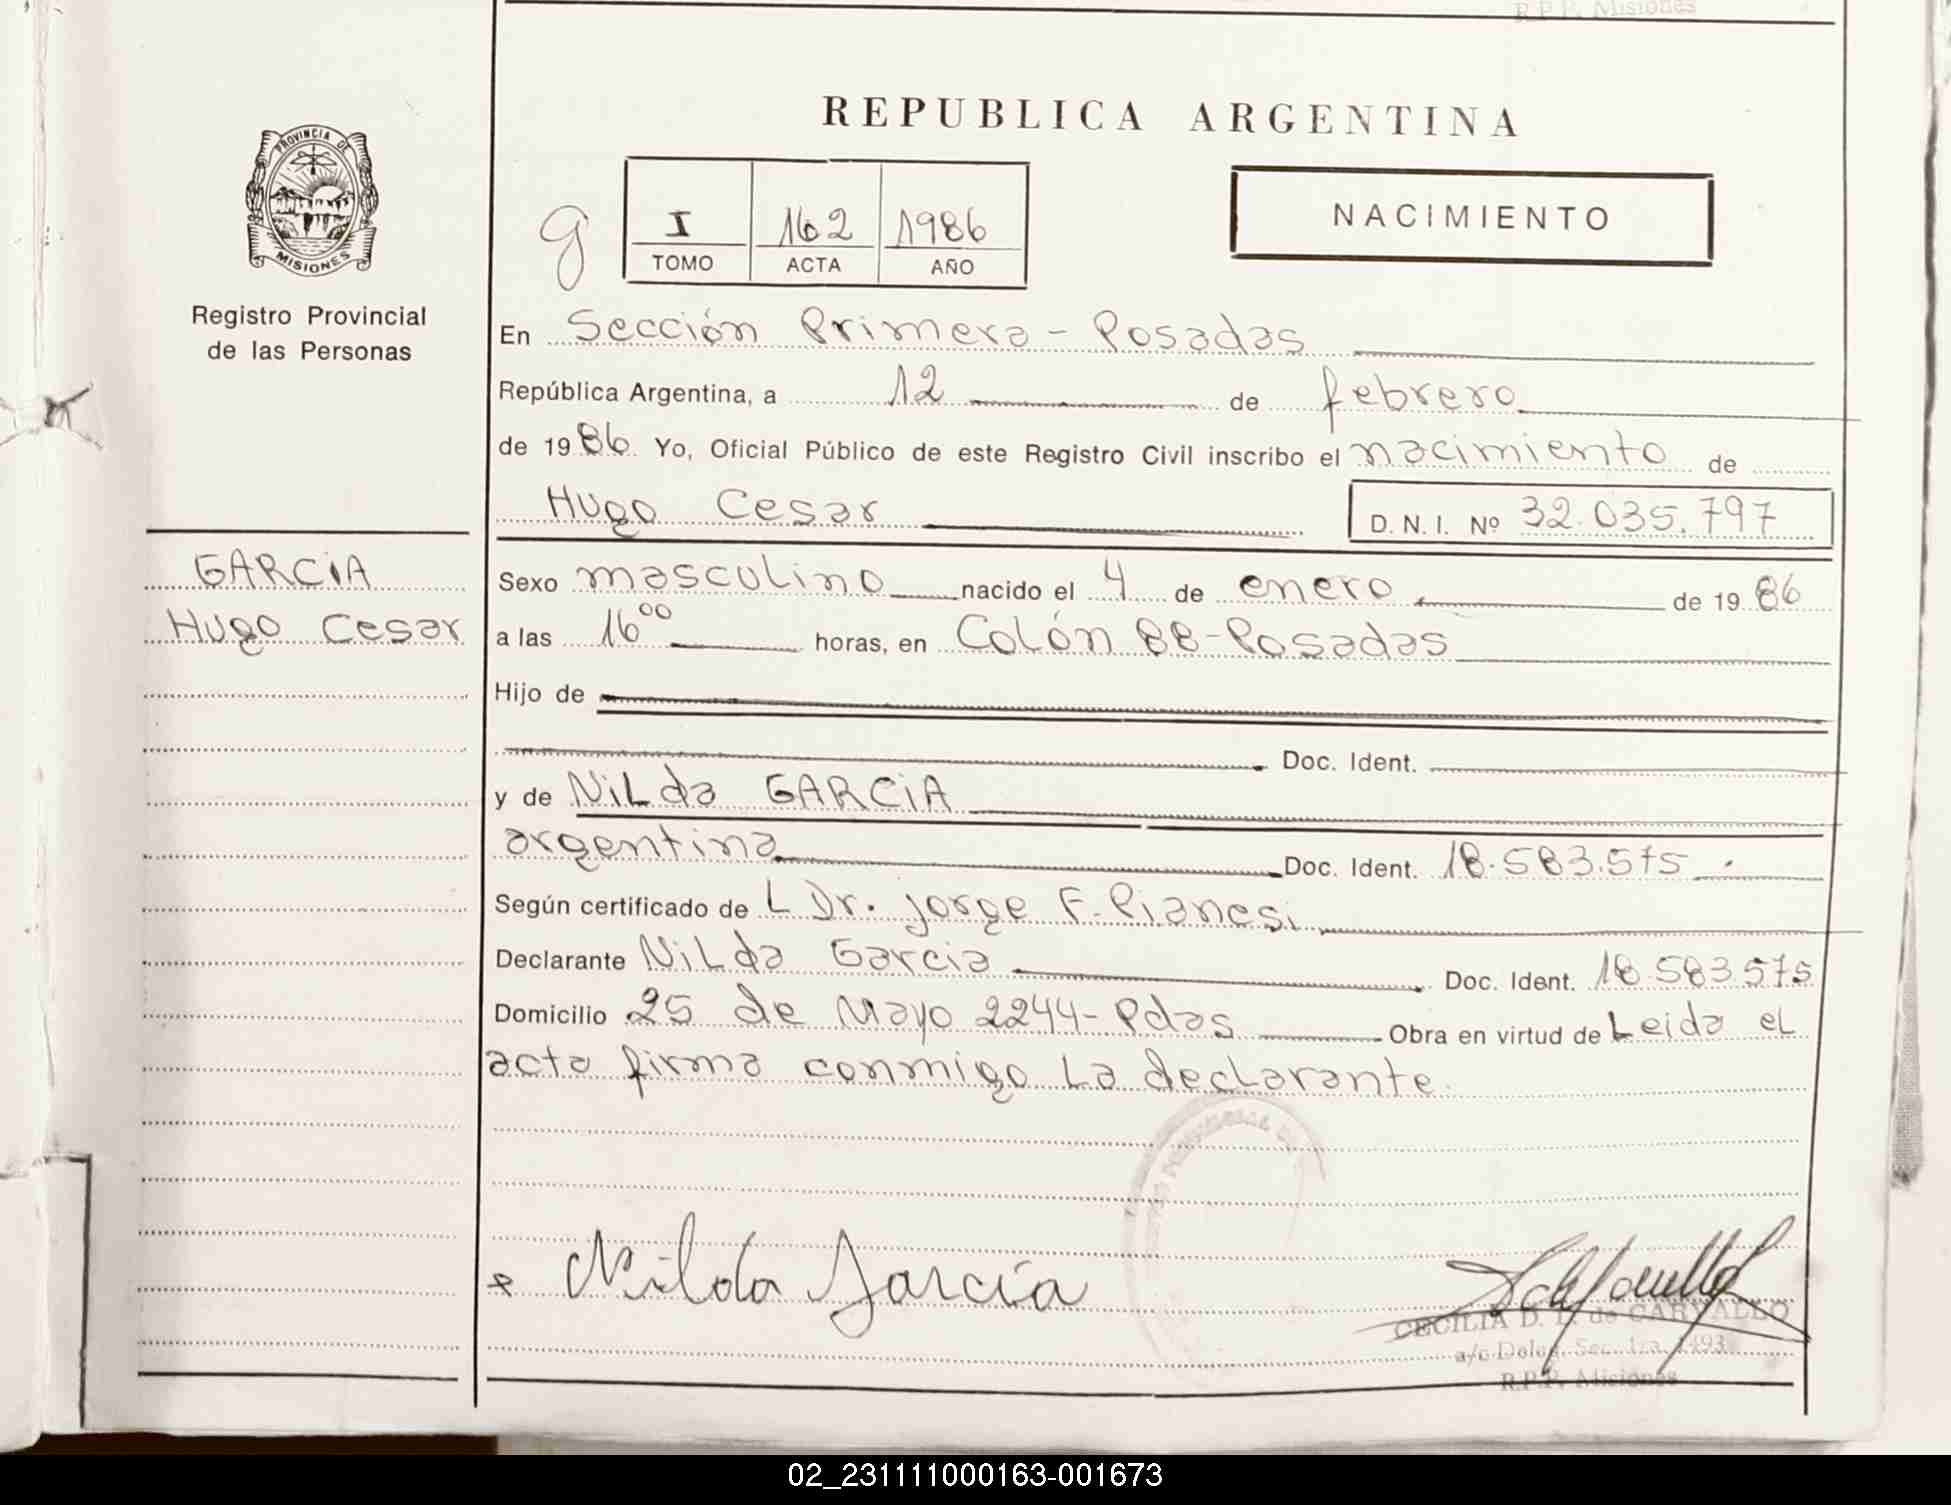 R.P.P. Misiones
REPUBLICA ARGENTINA
PROVINCIA DE
MISIONES
Registro Provincial
de las Personas
g
I 162 1986
TOMO ACTA AÑO
NACIMIENTO
En Sección Primera - Posadas
República Argentina, a 12 de febrero
de 1986 Yo, Oficial Público de este Registro Civil inscribo el nacimiento de
Hugo Cesar D. N. I. Nº 32.035.797
GARCIA
Hugo Cesar
Sexo masculino nacido el 4 de enero de 1986
a las 16 00 horas, en Colón 88 - Posadas
Hijo de
Doc. Ident.
y de Nilda GARCIA
argentina Doc. Ident. 18.583.575
Según certificado de L Dr. Jorge F. Pianesi
Declarante Nilda Garcia Doc. Ident. 18.583.575
Domicilio 25 de Mayo 2244 - Pdas Obra en virtud de Leida el
acta firma conmigo la declarante.
Nilda García
CECILIA D. de CARVALLO
a/c Deleg. Sec. 1ra. 1493
R.P.P. Misiones
02_231111000163-001673